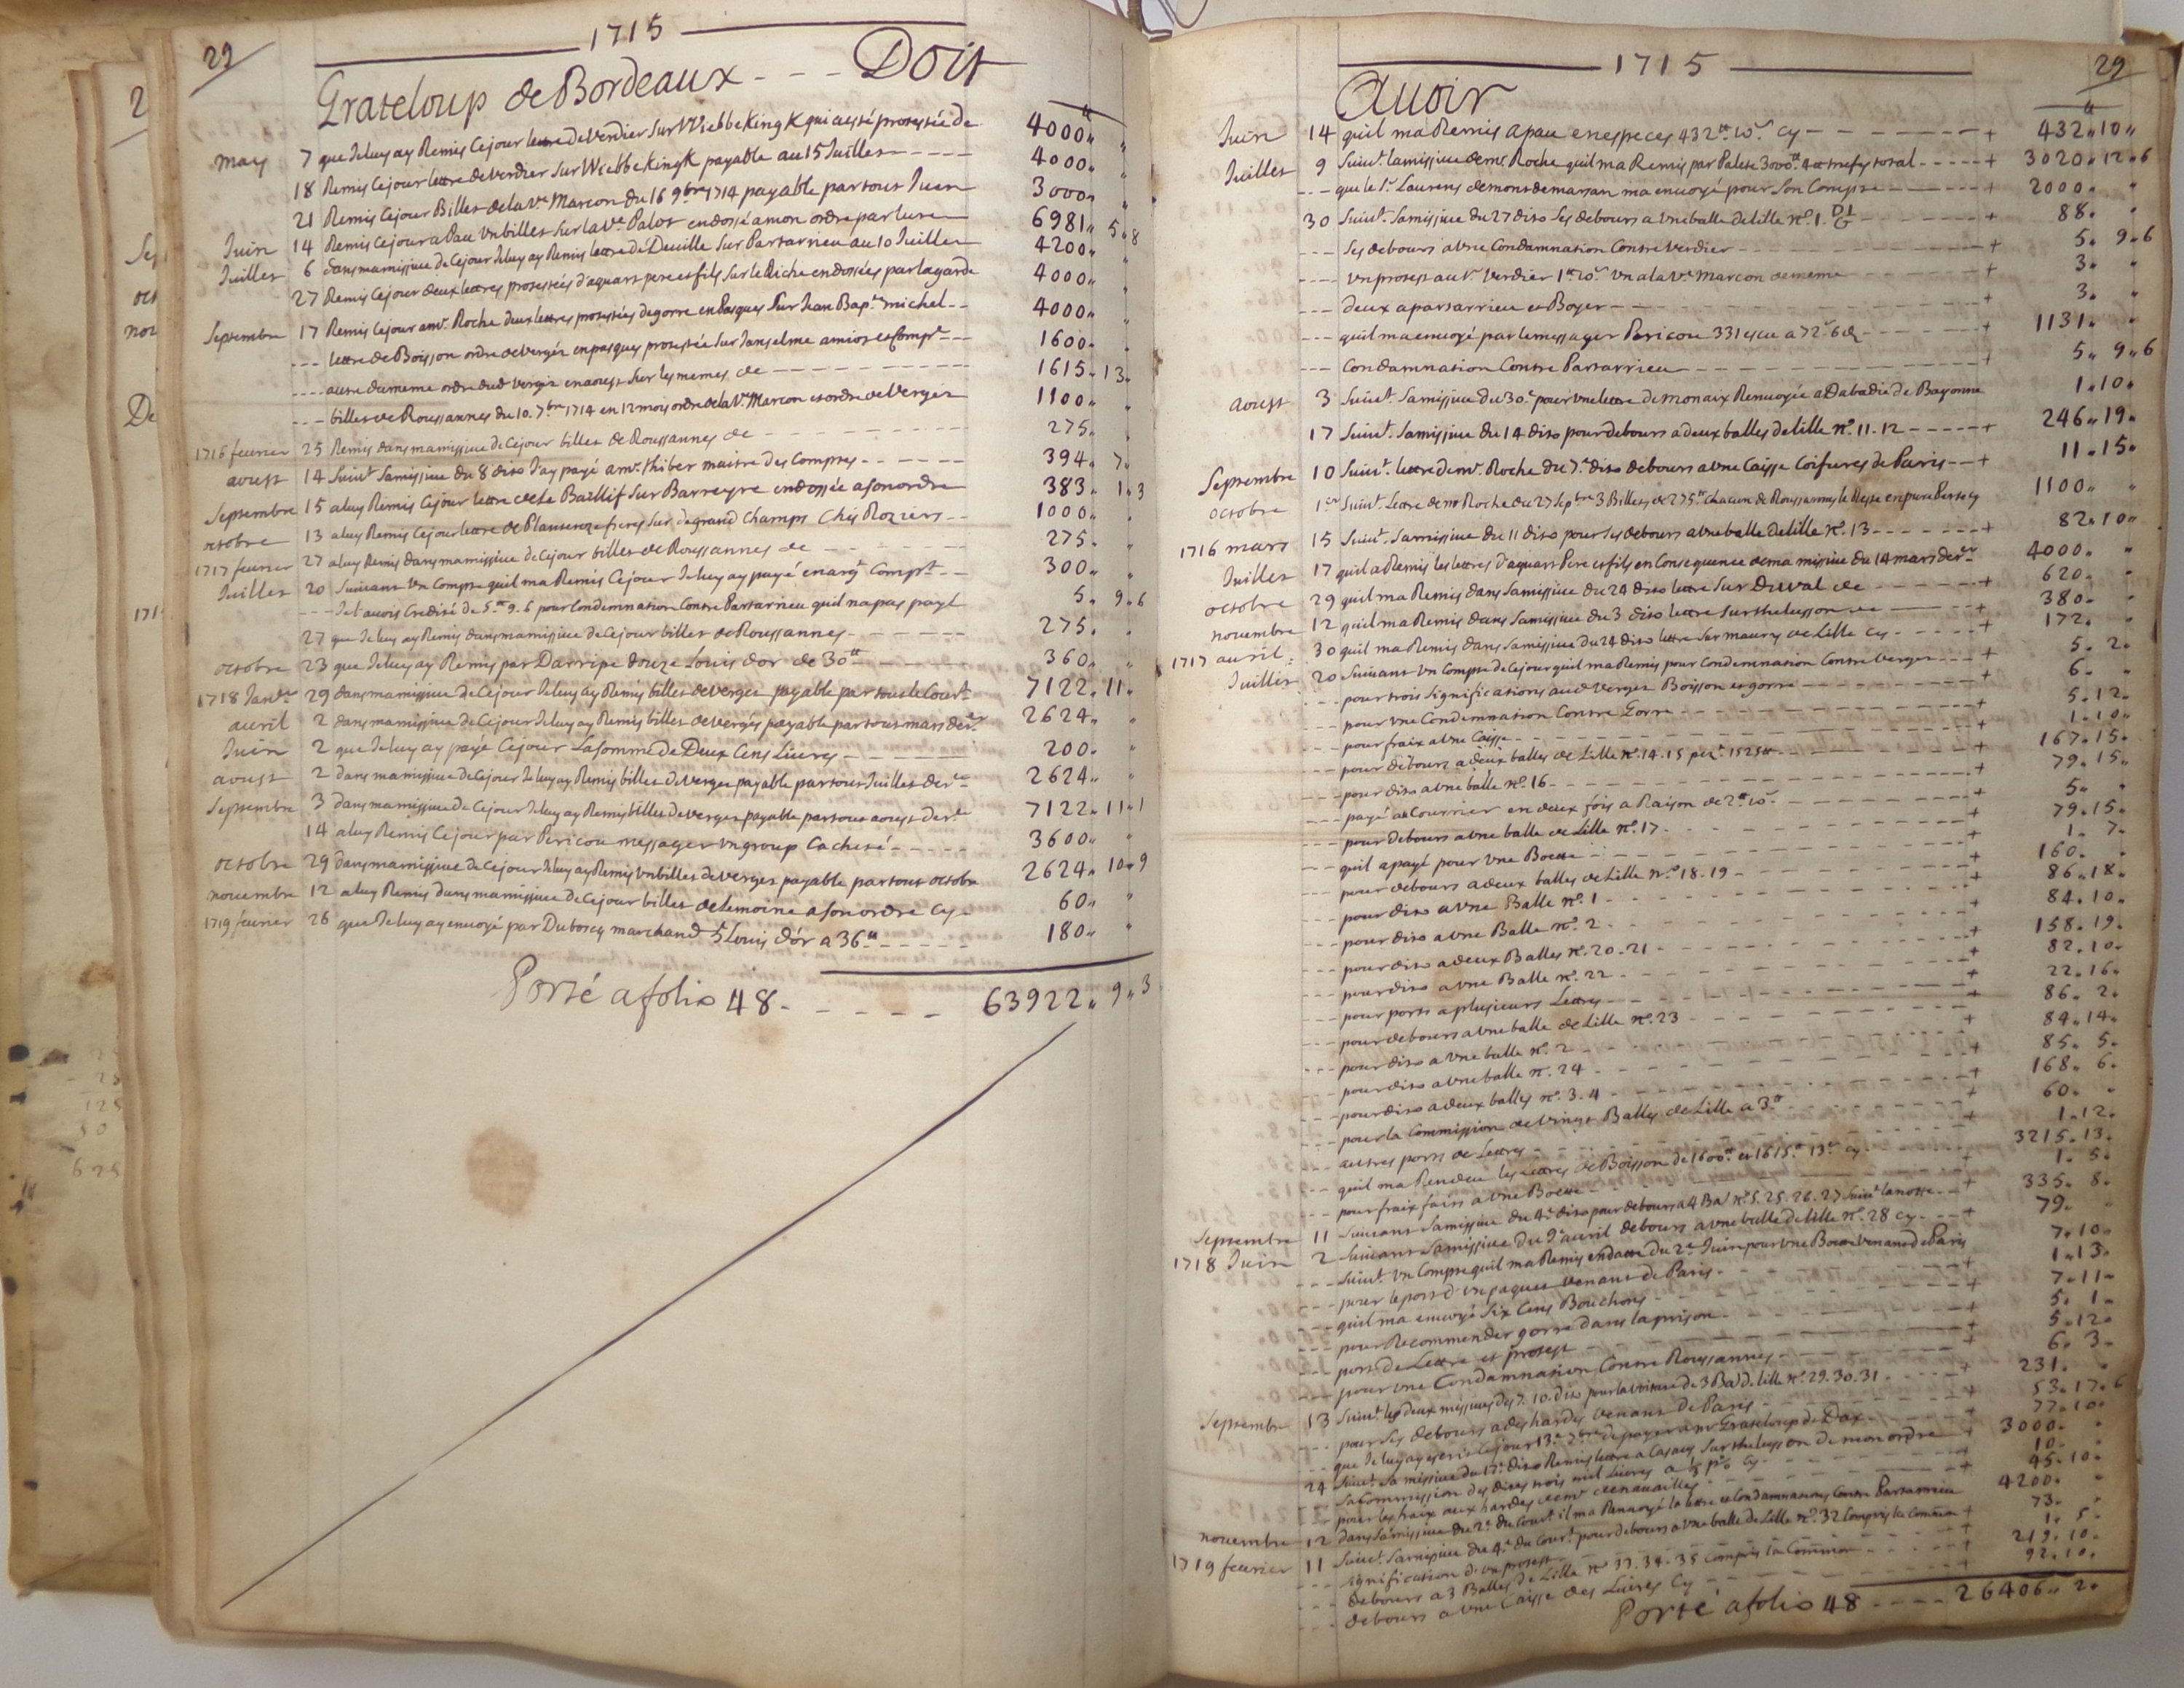 29
1715
Grateloup de Bordeaux - - - Doit
may 7 que Je luy ay Remis Ce jour lettre de Verdier Sur Wiebbekingk qui a esté protestée de 4000 " "
18 Remis Ce jour lettre de Verdier Sur Wiebbekingk payable au 15 Juillet 4000 " "
21 Remis Ce jour Billet de la Ve Marcon du 16 9bre 1714 payable par tout Juin 3000 " "
Juin 14 Remis Ce jour a Pau un billet Sur la Ve Palot endossé a mon ordre par luse 6981 " 5 " 8
Juillet 6 dans ma missive de Ce jour Je luy ay Remis lettre de Deuille Sur Partarrieu au 10 Juillet 4200 " "
27 Remis Ce jour deux lettres protestées d'aquart pere et fils Sur le Riche endossées par lagarde 4000 " "
Septembre 17 Remis Ce jour a mr. Roche deux lettres protestées de gorre en Pasques Sur Jean Bape. michel 4000 " "
--- lettre de Boisson ordre de Verges en pasques protestée Sur Janselme amiot et Compe. 1600 "
--- autre du meme ordre dud Verges en aoust Sur les memes de 1615 " 13 "
--- billet de Roussannes du 10. 7bre 1714 en 12 mois ordre de la Ve. Marcon et ordre de Verges 1100 " "
1716 feurier 25 Remis dans ma missive de Ce jour billet de Roussannes de 275 "
aoust 14 Suiut Sa missive du 8 dito J'ay payé a mr. thibet maitre des Comptes 394 " 7 "
Septembre 15 a luy Remis Ce jour lettre de Le Baillif Sur Barreyre endossée a Son ordre 383 " 1 " 3
octobre 13 a luy Remis Ce jour lettre de Plantenoze freres Sur degrand Champs Chés Roziers 1000 " "
1717 feurier 27 a luy Remis dans ma missive de Ce jour billet de Roussannes de 275 "
Juillet 20 Suivant Un Compte quil ma Remis Ce jour Je luy ay payé en argt Compt. 300 " "
--- Je l'auois Credité de 5tt 9. 6 pour Condemnation Contre Partarrieu quil na pas payé 5 " 9 " 6
27 que Je luy ay Remis dans ma missive de Ce jour billet de Roussannes 275 "
octobre 23 que Je luy ay Remis par Darripe douze Louis d'or de 30tt 360 " "
1718 Janer 29 dans ma missive de Ce jour Je luy ay Remis billet de Verges payable par tout le Court. 7122 " 11 "
auril 2 dans ma missive de Ce jour Je luy ay Remis billet de Verges payable par tout mars der. 2624 " "
Juin 2 que Je luy ay payé Ce jour La Somme de Deux Cens Liures 200 " "
aoust 2 dans ma missive de Ce jour Je luy ay Remis billet de Verges payable par tout Juillet der. 2624 " "
Septembre 3 dans ma missive de Ce jour Je luy ay Remis billet de Verges payable par tout aoust der. 7122 " 11 " 1
14 a luy Remis Ce jour par Pericou messager un group Cacheté 3600 " "
octobre 29 dans ma missive de Ce jour Je luy ay Remis un billet de Verges payable par tout octobre 2624 " 10 " 9
nouembre 12 a luy Remis dans ma missive de Ce jour billet de Lemoine a Son ordre Cy 60 " "
1719 feurier 26 que Je luy ay enuoyé par Duboscq marchand 5 Louis d'or a 36tt 180 " "
Porté a folio 48 - - - - - 63922 " 9 " 3
1715
29
Auoir
Juin 14 quil ma Remis a pau en especes 432tt. 10s Cy + 432 " 10 "
Juillet 9 Suiut. la missive de mr. Roche quil ma Remis par Palete 3000tt total + 3020 " 12 " 6
--- que le Sr. Laurens de mont de marsan ma enuoyé pour Son Compte + 2000 " "
30 Suiut. Sa missive du 27 dito Ses debours a Une balle de Lille No. 1. + 88 "
--- Ses debours a Une Condamnation Contre Verdier + 5 " 9 " 6
--- Un protest au Sr. Verdier 1tt 10s Un a la Ve Marcon de meme + 3 "
--- deux a partarrieu et Boyer + 3 "
--- quil ma enuoyé par le messager Pericou 331 escu a 72s 6d + 1131 "
--- Condamnation Contre Partarrieu + 5 " 9 " 6
aoust 3 Suiut. Sa missive du 30e pour Une lettre de monaix Renuoyée a Dabadie de Bayonne 1 " 10 "
17 Suiut. Sa missive du 14 dito pour debours a deux balles de Lille No. 11. 12 + 246 " 19 "
Septembre 10 Suiut. lettre de mr. Roche du 7e dito debours a Une Caisse Coifures de Paris + 11 " 15 "
octobre 1er Suiut. Lettre de mr Roche du 27 7bre 3 Billets de 275tt Chacun de Roussannes le Reste en pure Perte Cy 1100 " "
1716 mars 15 Suiut. Sa missive du 11 dito pour Ses debours a Une balle de Lille No. 13 + 82 " 10 "
Juillet 17 quil a Remis les lettres d'aquart Pere et fils en Consequence de ma missive du 14 mars der 4000 " "
octobre 29 quil ma Remis dans Sa missive du 24 dito lettre Sur Duval de + 620 "
nouembre 12 quil ma Remis dans Sa missive du 3 dito lettre Sur thelusson de + 380 "
1717 auril 30 quil ma Remis dans Sa missive du 24 dito lettre Sur maury de Lille Cy + 172 "
Juillet 20 Suivant Un Compte de Ce jour quil ma Remis pour Condemnation Contre Verges + 5 " 2 "
--- pour trois Significations aud Verges Boisson et gorre + 6 "
--- pour Une Condemnation Contre Gorre + 5 " 12 "
--- pour fraix a Une Caisse + 1 " 10 "
--- pour debours a deux balles de Lille No. 14. 15 + 167 " 15 "
--- pour dito a Une balle No. 16 + 79 " 15 "
--- payé au Courrier en deux fois a Raison de 2tt 10s + 5 "
--- pour debours a Une balle de Lille No. 17 + 79 " 15 "
--- quil a payé pour Une Boette + 1 " 7 "
--- pour debours a deux balles de Lille No. 18. 19 + 160 "
--- pour dito a Une Balle No. 1 + 86 " 18 "
--- pour dito a Une Balle No. 2 + 84 " 10 "
--- pour dito a deux Balles No. 20. 21 + 158 " 19 "
--- pour dito a Une Balle No. 22 + 82 " 10 "
--- pour ports a plusieurs Lettres + 22 " 16 "
--- pour debours a Une balle de Lille No. 23 + 86 " 2 "
--- pour dito a Une balle No. 2 + 84 " 14 "
--- pour dito a Une balle No. 24 + 85 " 5 "
--- pour dito a deux balles No. 3. 4 + 168 " 6 "
--- pour la Commission de Vingt Balles de Lille a 3tt + 60 "
--- autres ports de Lettres 1 " 12 "
--- quil ma Rendeu les Lettres de Boisson de 1600tt et 1615tt 13s Cy 3215 " 13 "
--- pour fraix faits a Une Boette + 1 " 5 "
Septembre 11 Suivant Sa missive du 4e dito pour debours a 4 Ba No. 5. 25. 26. 27 Suiut la notte + 335 " 8 "
1718 Juin 2 Suivant Sa missive du 9e auril debours a Une balle de Lille No. 28 Cy + 79 "
--- Suiut. Un Compte quil ma Remis en datte du 2e Juin pour Une Boette Venant de Paris 7 " 10 "
--- pour le port d'un paquet Venant de Paris + 1 " 13 "
--- quil ma enuoyé Six Cens Bouchons + 7 " 11 "
--- pour Recommender gorre dans la prison + 5 " 1 "
--- port de Lettre et protest + 5 " 12 "
--- pour Une Condamnation Contre Roussannes + 6 " 3 "
Septembre 13 Suiut. les deux missives des 7. 10. dito pour la Voiture de 3 Ba D. Lille No. 29. 30. 31 + 231 "
--- pour Ses debours a des hardes Venant de Paris + 53 " 17 " 6
--- que Je luy ay escrit Ce jour 13e 7bre de payer a mr Grateloup de Dax + 77 " 10 "
24 Suiut. Sa missive du 17e dito Remis lettre a Casaux Sur thelusson de mon ordre + 3000 "
--- Sa Commission des dites trois mil Liures a ⅓ p% Cy + 10 "
--- pour les fraix aux hardes de mr. denauailles + 45 " 10 "
nouembre 12 dans Sa missive du 2e du Court. il ma Renuoyé la lettre et Condamnations Contre Partarrieu 4200 "
1719 feurier 11 Suiut. Sa missive du 4e du Court. pour debours a Une balle de Lille No. 32 Compris la Common + 73 "
--- Signification d'un protest + 1 " 5 "
--- debours a 3 Balles de Lille No 33. 34. 35 Compris la Common + 219 " 10 "
--- debours a Une Caisse des Liures Cy + 92 " 10 "
Porté a folio 48 - - - - 26406 " 2 "